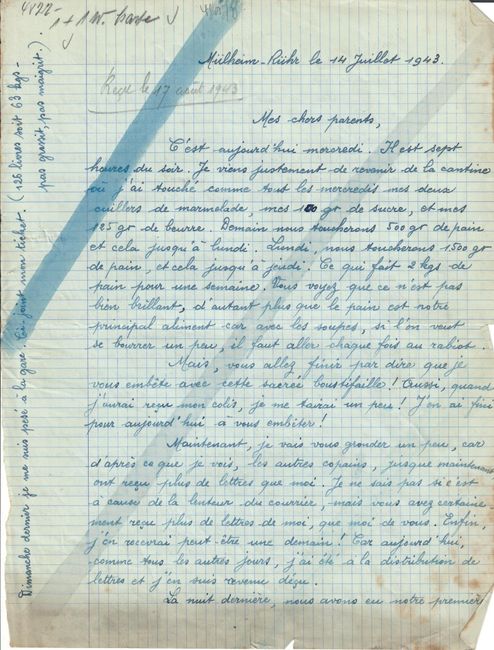 4422-
1 + 1 W. Karte
Mülheim-Rühr le 14 Juillet 1943.
Reçue le 17 août 1943
Mes chers parents,
C'est aujourd'hui mercredi. Il est sept
heures du soir. Je viens justement de revenir de la cantine
où j'ai touché comme tout les mercredis mes deux
cuillers de marmelade, mes 100 gr de sucre, et mes
125 gr de beurre. Demain nous toucherons 500 gr de pain
et cela jusqu'à lundi. Lundi, nous toucherons 1500 gr
de pain, et cela jusqu'à jeudi. Ce qui fait 2 kgs de
pain pour une semaine. Vous voyez que ce n'est pas
bien brillant, d'autant plus que le pain est notre
principal aliment car avec les soupes, si l'on veut
se bourrer un peu, il faut aller chaque fois au rabiot.
Mais, vous allez finir par dire que je
vous embête avec cette sacrée boustifaille ! Aussi, quand
j'aurai reçu mon colis, je me tairai un peu ! J'en ai fini
pour aujourd'hui à vous embêter !
Maintenant, je vais vous gronder un peu, car
d'après ce que je vois, les autres copains, jusque maintenant
ont reçu plus de lettres que moi. Je ne sais pas si c'est
à cause de la lenteur du courrier, mais vous avez certaine-
ment reçu plus de lettres de moi, que moi de vous. Enfin,
j'en recevrai peut-être une demain ! Car aujourd'hui,
comme tous les autres jours, j'ai été à la distribution de
lettres et j'en suis revenu déçu.
La nuit dernière, nous avons eu notre premier
Dimanche dernier je me suis pesé à la gare. Ci-joint mon ticket. (126 livres soit 63 kgs-
pas grossit, pas maigrit.).